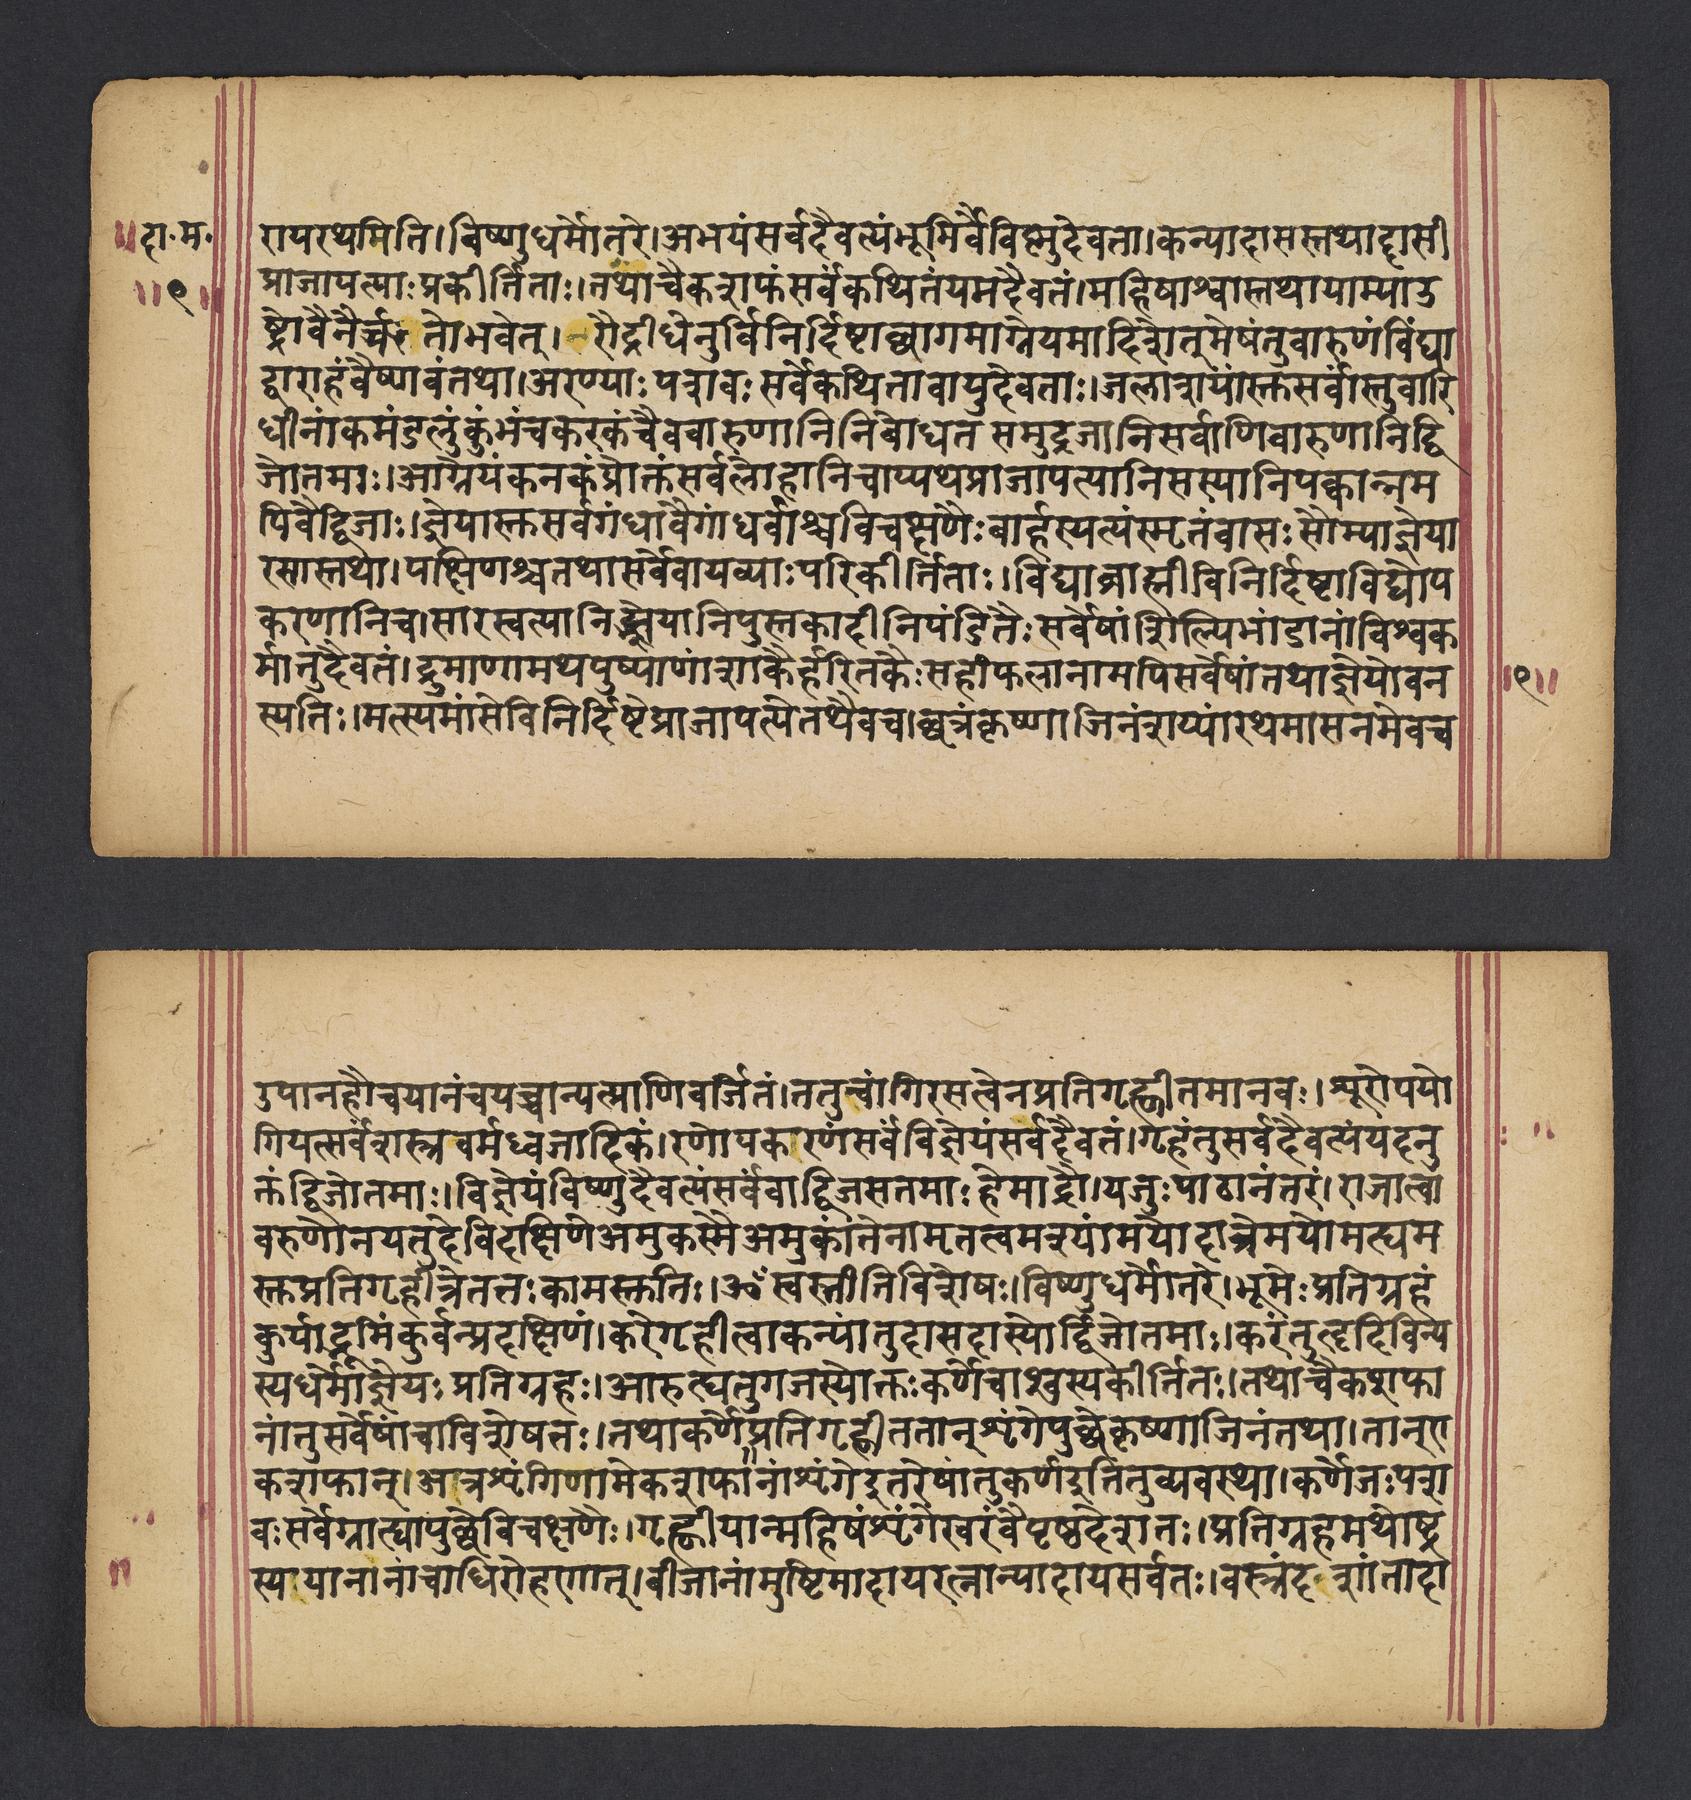 ॥दा.म.
॥९॥
रायरथमिति।विष्णुधर्मोतरे।अभयंसर्वदैवत्यंभूमिर्वैविष्णुदेवता।कन्यादासस्तथादासी
प्राजापत्याःप्रकीर्त्तिताः।तथाचैकशफंसर्वंकथितंयमदैवतं।महिषाश्वास्तथायाम्याउ
ष्ट्रोवैनैर्ऋतोभवेत्।रौद्रीधेनुर्विनिर्दिष्टाछागमाग्नेयमादिशेत्मेषंतुवारुणंविंद्या
द्वाराहंवैष्णवंतथा।अरण्याःपशवःसर्वेकथितावायुदेवताः।जलाशयांस्तसर्वांस्तुवारि
धीनांकमंडलुंकुंभंचकरकंचैववारुणानिनिबोधत समुद्रजानिसर्वाणिवारुणानिद्वि
जोतमाः।आग्नेयंकनकंप्रोक्तंसर्वलोहानिचाप्यथप्राजापत्यानिसस्यानिपक्वान्नम
पिवैद्विजाः।ज्ञेयास्तसर्वगंधावैगांधर्वाश्चविचक्षणैःबार्हस्पत्यंस्मृतंवासःसौम्याज्ञेया
रसास्तथा।पक्षिणश्चतथासर्वेवायव्याःपरिकीर्त्तिताः।विद्याब्राह्मीविनिर्दिष्टाविद्योप
करणानिच।सारस्वत्यानिज्ञेयानिपुस्तकादीनिपंडितैःसर्वेषांशिल्पिभांडानांविश्वक
र्मातुदैवतं।द्रुमाणामथपुष्पाणांशाकैर्हरितकैःसहीफलानामपिसर्वेषांतथाज्ञेयोवन
स्पतिः।मत्स्यमांसेविनिर्दिष्टेप्राजापत्येतथैवच।छत्रंकृष्णाजिनंशय्यांरथमासनमेवच
॥९॥
उपानहौचयानंचयच्चान्यत्प्राणिवर्जितं।ततुत्वांगिरसत्वेनप्रतिगृह्णीतमानवः।शूरोपयो
गियत्सर्वंशस्त्रवर्मध्वजादिकं।रणोपकारणंसर्वंविज्ञेयंसर्वदैवतं।गृहंतुसर्वदैवत्यंयदनु
क्तंद्विजोतमाः।विज्ञेयंविष्णुदैवत्यंसर्वंवाद्विजसतमाःहेमाद्रौ।यजुःपाठानंतरं।राजात्वा
वरुणोनयतुदेविदक्षिणेअमुकस्मैअमुकांतेनामृतत्वमश्यांमयोदात्रेमयोमह्यम
स्तप्रतिगृहीत्रेतत्तःकामस्ततिः।ॐस्वस्तीतिविशेषः।विष्णुधर्मोतरे।भूमेःप्रतिग्रहं
कुर्याद्भूमिंकुर्वन्प्रदक्षिणं।करेगृहीत्वाकन्यांतुदासदास्योर्द्विजोतमाः।करंतुहृदिविन्य
स्यधर्मोज्ञेयःप्रतिग्रहः।आरुह्यतुगजस्योक्तःकर्णेचाश्वस्यकीर्त्तितः।तथाचैकशफा
नांतुसर्वेषांचाविशेषतः।तथाकर्णेप्रतिगृह्णीततान्शृंगेपुछेकृष्णाजिनंतथा।तान्ए
कशफान्।आत्रशृंगिणामेकशफानांशृंगेइतरेषांतुकर्णइतितुव्यवस्था।कर्णेजःपश
वःसर्वेग्राह्यापुछेविचक्षणैः।गृह्णीयान्महिषंशृंगेखरंवैपृष्ठदेशतः।प्रतिग्रहमथोष्ट्र
स्ययानानांचाधिरोहणात्।बीजानांमुष्टिमादायरत्नान्यादायसर्वतः।वस्त्रंदशांतादा